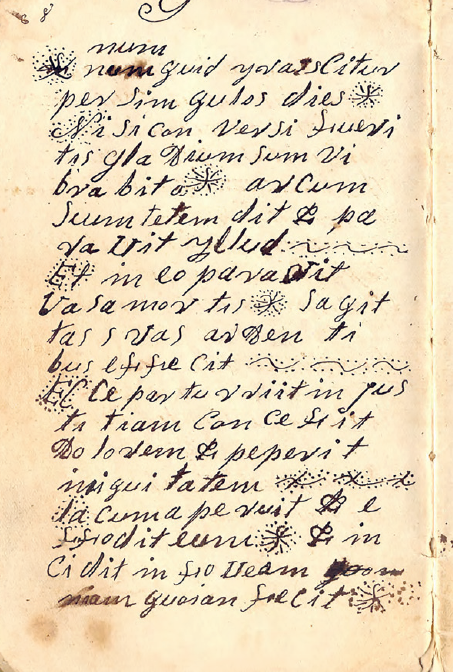 8
num
num quid yrasCitur
per Sim gulos dies
Ni si con versi fueri
tis gla Dium Sum vi
bra bit a arCum
Suum tetem dit & pa
ra Vit yllud
Et in eo paravit
Vasa mor tis Sagit
tas s vas arDen ti
bus effe Cit
ECCe par tu rriit in jus
ti tiam Con Ce fi it
Do lorem & peperit
iniqui tatem
la cum aperuit & e
ffodit eum & in
Cidit in fo Veam
nam quosan feCit